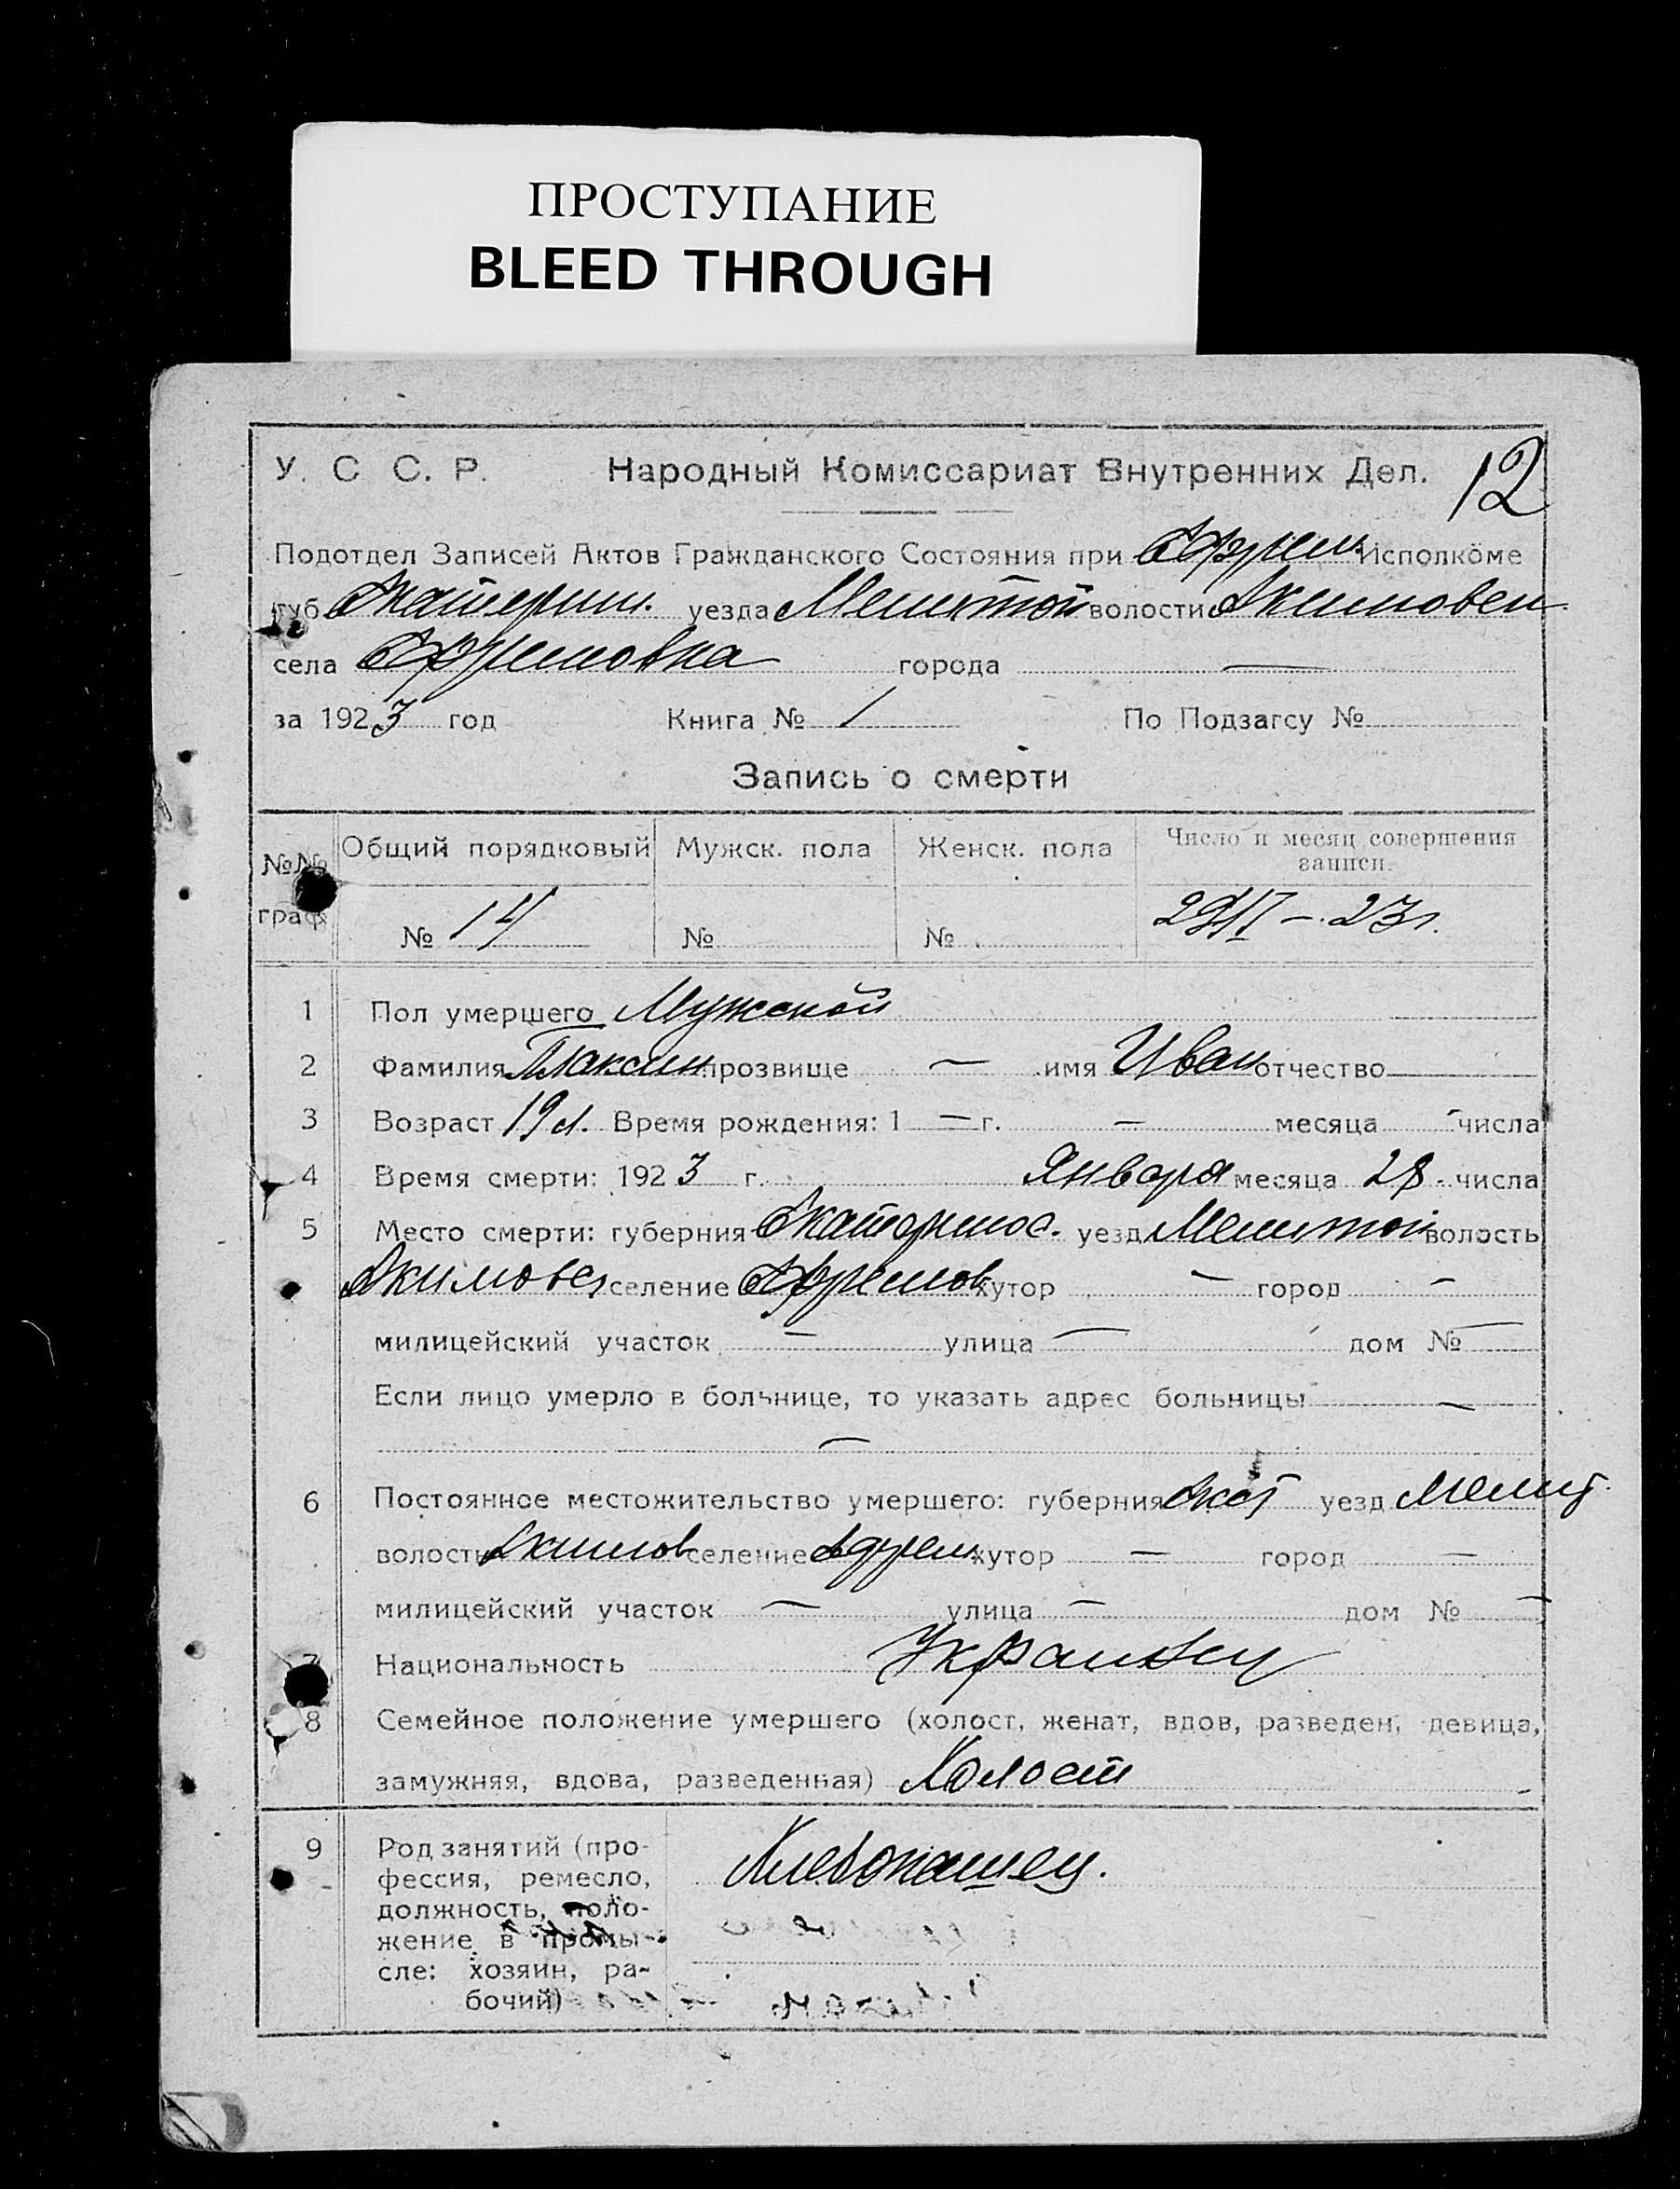 ПРОСТУПАНИЕ
BLEED THROUGH
У. С С. Р. Народный Комиссариат Внутренних Дел. 12
Подотдел Записей Актов Гражданского Состояния при Ефрем. Исполкоме
губ Екатерин. уезда Мелитой волости Акимовск
села Ефремовка города —
за 1923 год Книга № 1 По Подзагсу №
Запись о смерти
№№ граф Общий порядковый Мужск. пола Женск. пола Число и месяц совершения записи.
№ 14 № № 29/I – 23 г.
1 Пол умершего Мужской
2 Фамилия прозвище — имя Иван отчество
3 Возраст 19 л. Время рождения: 1 — г. — месяца - числа
4 Время смерти: 1923 г. Января месяца 28 - числа
5 Место смерти: губерния Екатеринос. уезд Мелитой волость
Акимовс селение Ефремов хутор — город —
милицейский участок — улица — дом № —
Если лицо умерло в больнице, то указать адрес больницы —
—
6 Постоянное местожительство умершего: губерния Екат уезд Мелит.
волость Акимов селение Ефрем хутор — город —
милицейский участок — улица — дом № —
7 Национальность Украинец
8 Семейное положение умершего (холост, женат, вдов, разведен, девица,
замужняя, вдова, разведенная) Холост
9 Род занятий (про- Хлебопашец.
фессия, ремесло,
должность, поло-
жение в промы-
сле: хозяин, ра-
бочий)